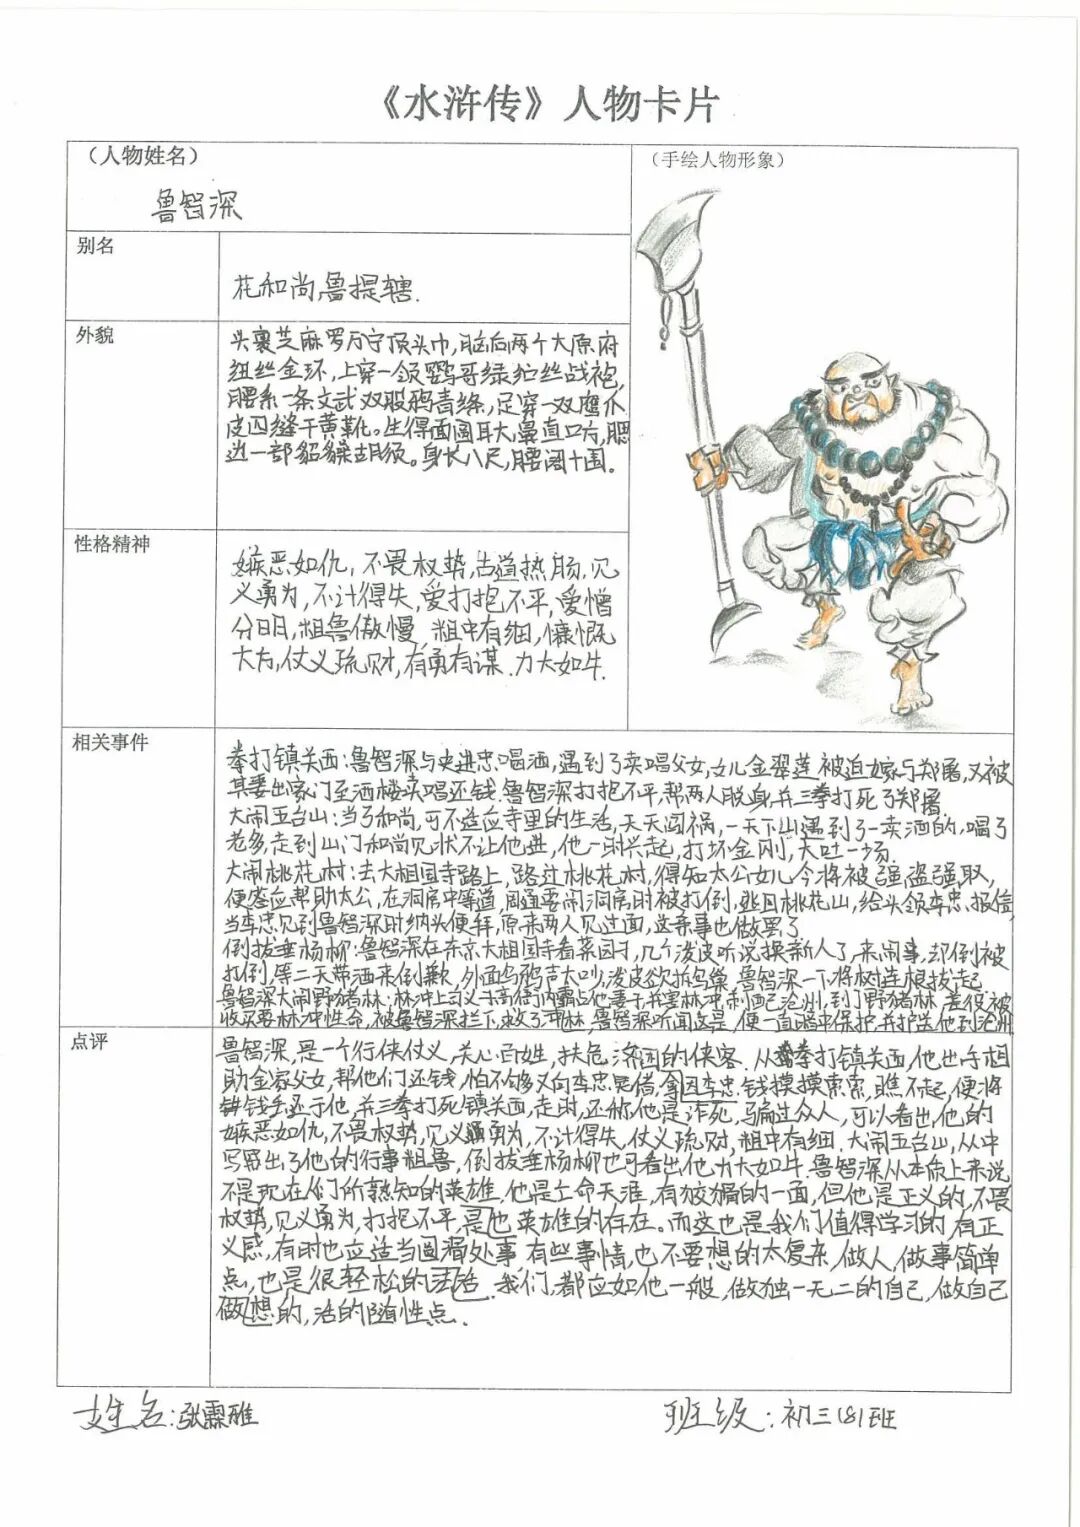 《水浒传》人物卡片
（人物姓名）
鲁智深
（手绘人物形象）
别名
花和尚,鲁提辖.
外貌
头裹芝麻罗万字顶头巾,脑后两个太原府
纽丝金环,上穿一领鹦哥绿纻丝战袍,
腰系一条文武双股鸦青绦,足穿一双鹰爪
皮四缝干黄靴。生得面圆耳大,鼻直口方,腮
边一部貂𧳅胡须。身长八尺,腰阔十围.
性格精神
嫉恶如仇,不畏权势,古道热肠.见
义勇为,不计得失,爱打抱不平,爱憎
分明,粗鲁傲慢,粗中有细,慷慨
大方,仗义疏财,有勇有谋.力大如牛.
相关事件
拳打镇关西:鲁智深与史进忠喝酒,遇到了卖唱父女,女儿金翠莲被迫嫁与郑屠,又被
其妻出家门至酒楼卖唱还钱.鲁智深打抱不平,帮两人脱身,并三拳打死了郑屠.
大闹五台山:当了和尚,可不适应寺里的生活,天天闯祸,一天下山遇到了一卖酒的,喝了
老多,走到山门和尚见状不让他进,他一时兴起,打坏金刚,大吐一场.
大闹桃花村:去大相国寺路上,路过桃花村,得知太公女儿今将被强盗强取,
便答应帮助太公,在洞房中等道,周通要闹洞房时被打倒,逃回桃花山,给头领李忠报信,
当李忠见到鲁智深时纳头便拜,原来两人见过面,这亲事也做罢了
倒拔垂杨柳:鲁智深在东京大相国寺看菜园时,几个泼皮听说换新人了,来闹事,却倒被
打倒,等二天带酒来倒歉,外面乌鸦声大吵,泼皮欲拆鸟巢,鲁智深一下将树连根拔起.
鲁智深大闹野猪林:林冲上司义子高衙内霸占他妻子并害林冲刺配沧州,到了野猪林,差役被
收买要林冲性命,被鲁智深拦下,救了林冲,鲁智深听闻这是,便一直暗中保护,并护送他到沧州
点评
鲁智深,是一个行侠仗义,关心百姓,扶危济困的侠客.从拳打镇关西,他出手相
助金家父女,帮他们还钱,怕不够又向李忠史借,拿因李忠.钱摸摸索索,瞧不起,便将
钱丢还于他,并三拳打死镇关西,走时,还称他是诈死,骗过众人,可以看出,他的
嫉恶如仇,不畏权势,见义勇为,不计得失,仗义疏财,粗中有细.大闹五台山,从中
写出了他的行事粗鲁,倒拔垂杨柳也可看出他力大如牛.鲁智深从本质上来说
不是现在们所熟知的英雄.他是亡命天涯,有狡猾的一面,但他是正义的,不畏
权势,见义勇为,打抱不平,是他英雄的存在.而这也是我们值得学习的,有正
义感,有时也应适当圆滑处事,有些事情,也不要想的太复杂,做人,做事简单
点,也是很轻松的生活.我们,都应如他一般,做独一无二的自己,做自己
做想的,活的随性点.
姓名:张霖雅
班级:初三(8)班